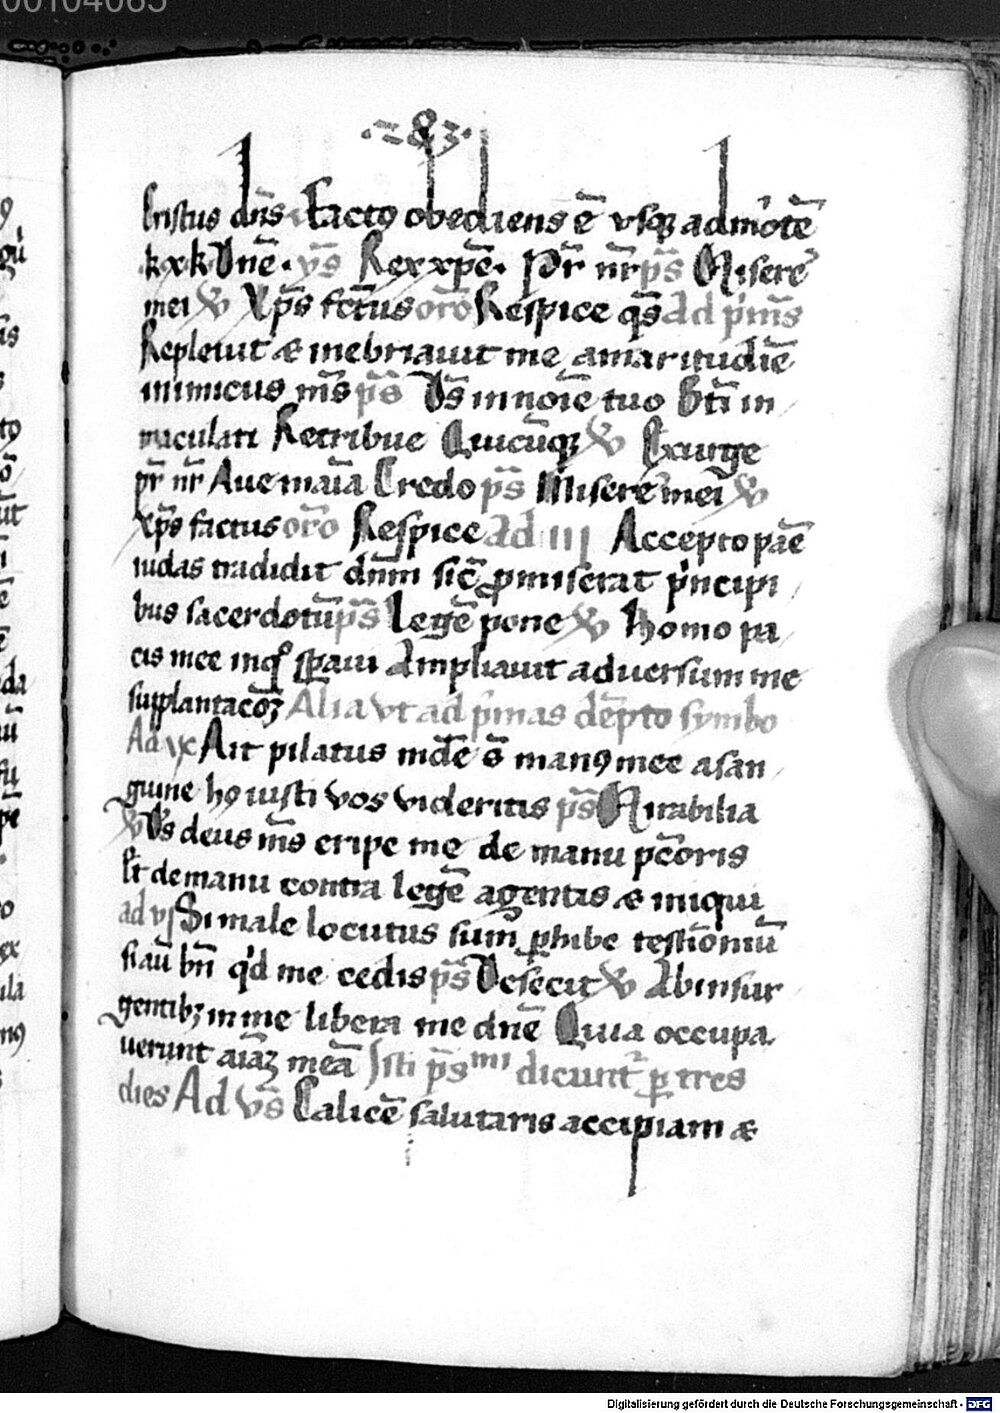 00104065
·283·
Cristus dn̄s Factꝯ obediens ē vsqꝫ ad mōtē
kyrk Dn̄e · p̄s Rex xp̄e · Pr̄ nr̄ p̄s Miserē
mei ꝟ Xp̄s fc̄tus or̄o Respice qs̄ Ad pīm̄s
Repleuit æ inebriauit me amaritudīē
inimicus m̄s p̄s Ds̄ in noīe tuo Bt̄i in
maculati Retribue Quicūqꝫ ꝟ Exurge
pr̄ nr̄ Aue maīa Credo p̄s Miserē mei ꝟ
xp̄s factus or̄o Respice ad III Accepto pāe
iudas tradidit dn̄m sic̄ ꝓmiserat pncipi
bus sacerdotū p̄s Legē pone ꝟ Homo pa
cis mee in qͦ sp̄aui Ampliauit aduersum me
supplantacōꝫ Alia vt ad pīnas dēpto symbo
Ad vꝭ Ait pilatus mūdē s̄ manꝯ mee a san
guine hꝯ iusti vos videritis p̄s Mirabilia
ꝟ Ds̄ deus m̄s eripe me de manu pc̄oris
Et de manu contra legē agentis æ iniqui
ad vj Si male locutus sum ꝑhibe testīoniū
si aū bn̄ qͥd me cedis p̄s Defēcit ꝟ Ab insur
gentibꝫ in me libera me dn̄e Quia occupa
uerunt aīaꝫ meā Isti p̄s mi dicunt̄ ꝑ tres
dies Ad Vs̄ Calicē salutaris accipiam æ
Digitalisierung gefördert durch die Deutsche Forschungsgemeinschaft - DFG